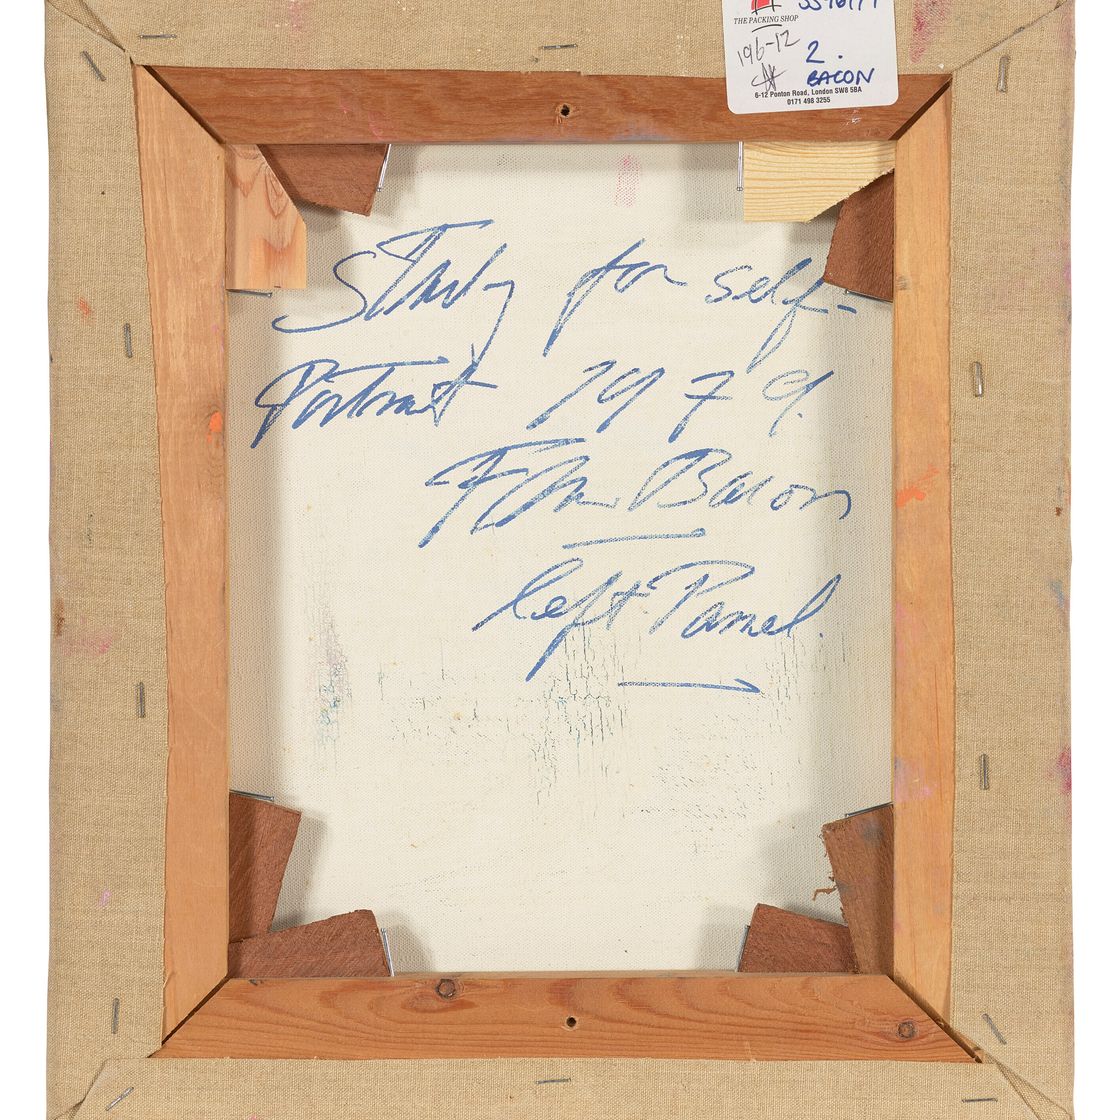 THE PACKING SHOP
196-12
2.
BACON
6-12 Ponton Road, London SW8 5BA
0171 498 3255
Study for self-
Portrait 1979.
Francis Bacon
left Panel.